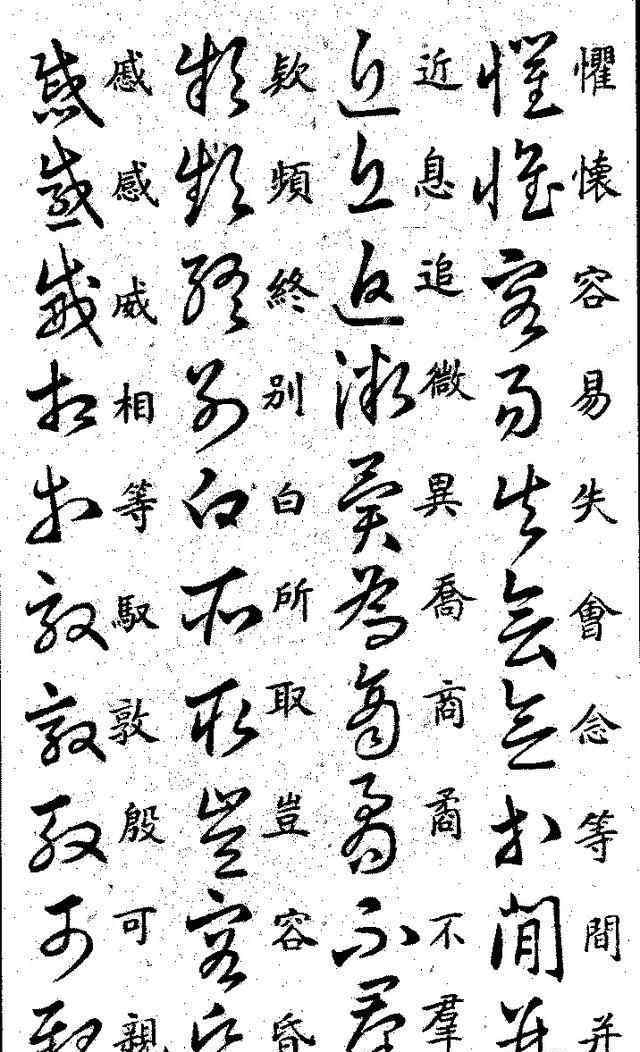 懼懷容易失會念等間并
近息追微異喬商矞不羣
欵頻終別白所取豈容昏
慼感威相等馭敦殷可親